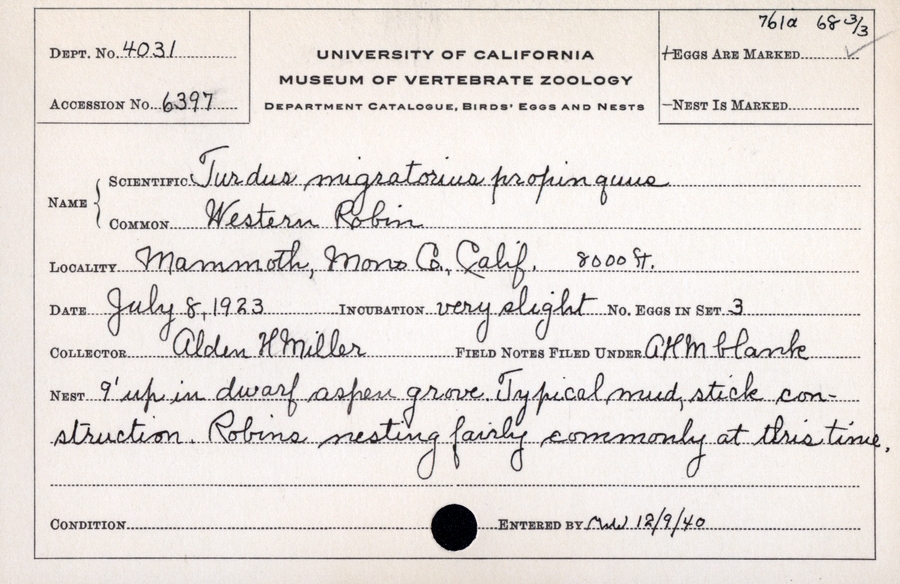 761a 68 3/3
DEPT. NO. 4031
UNIVERSITY OF CALIFORNIA
+EGGS ARE MARKED ✓
MUSEUM OF VERTEBRATE ZOOLOGY
ACCESSION NO. 6397
DEPARTMENT CATALOGUE, BIRDS' EGGS AND NESTS
—NEST IS MARKED
NAME { SCIENTIFIC Turdus migratorius propinquus
COMMON Western Robin
LOCALITY Mammoth, Mono Co., Calif. 8000 ft.
DATE July 8, 1923 INCUBATION very slight NO. EGGS IN SET 3
COLLECTOR Alden H Miller FIELD NOTES FILED UNDER AHM blank
NEST 9' up in dwarf aspen grove. Typical mud, stick con-
struction. Robins nesting fairly commonly at this time.
CONDITION ENTERED BY 12/9/40